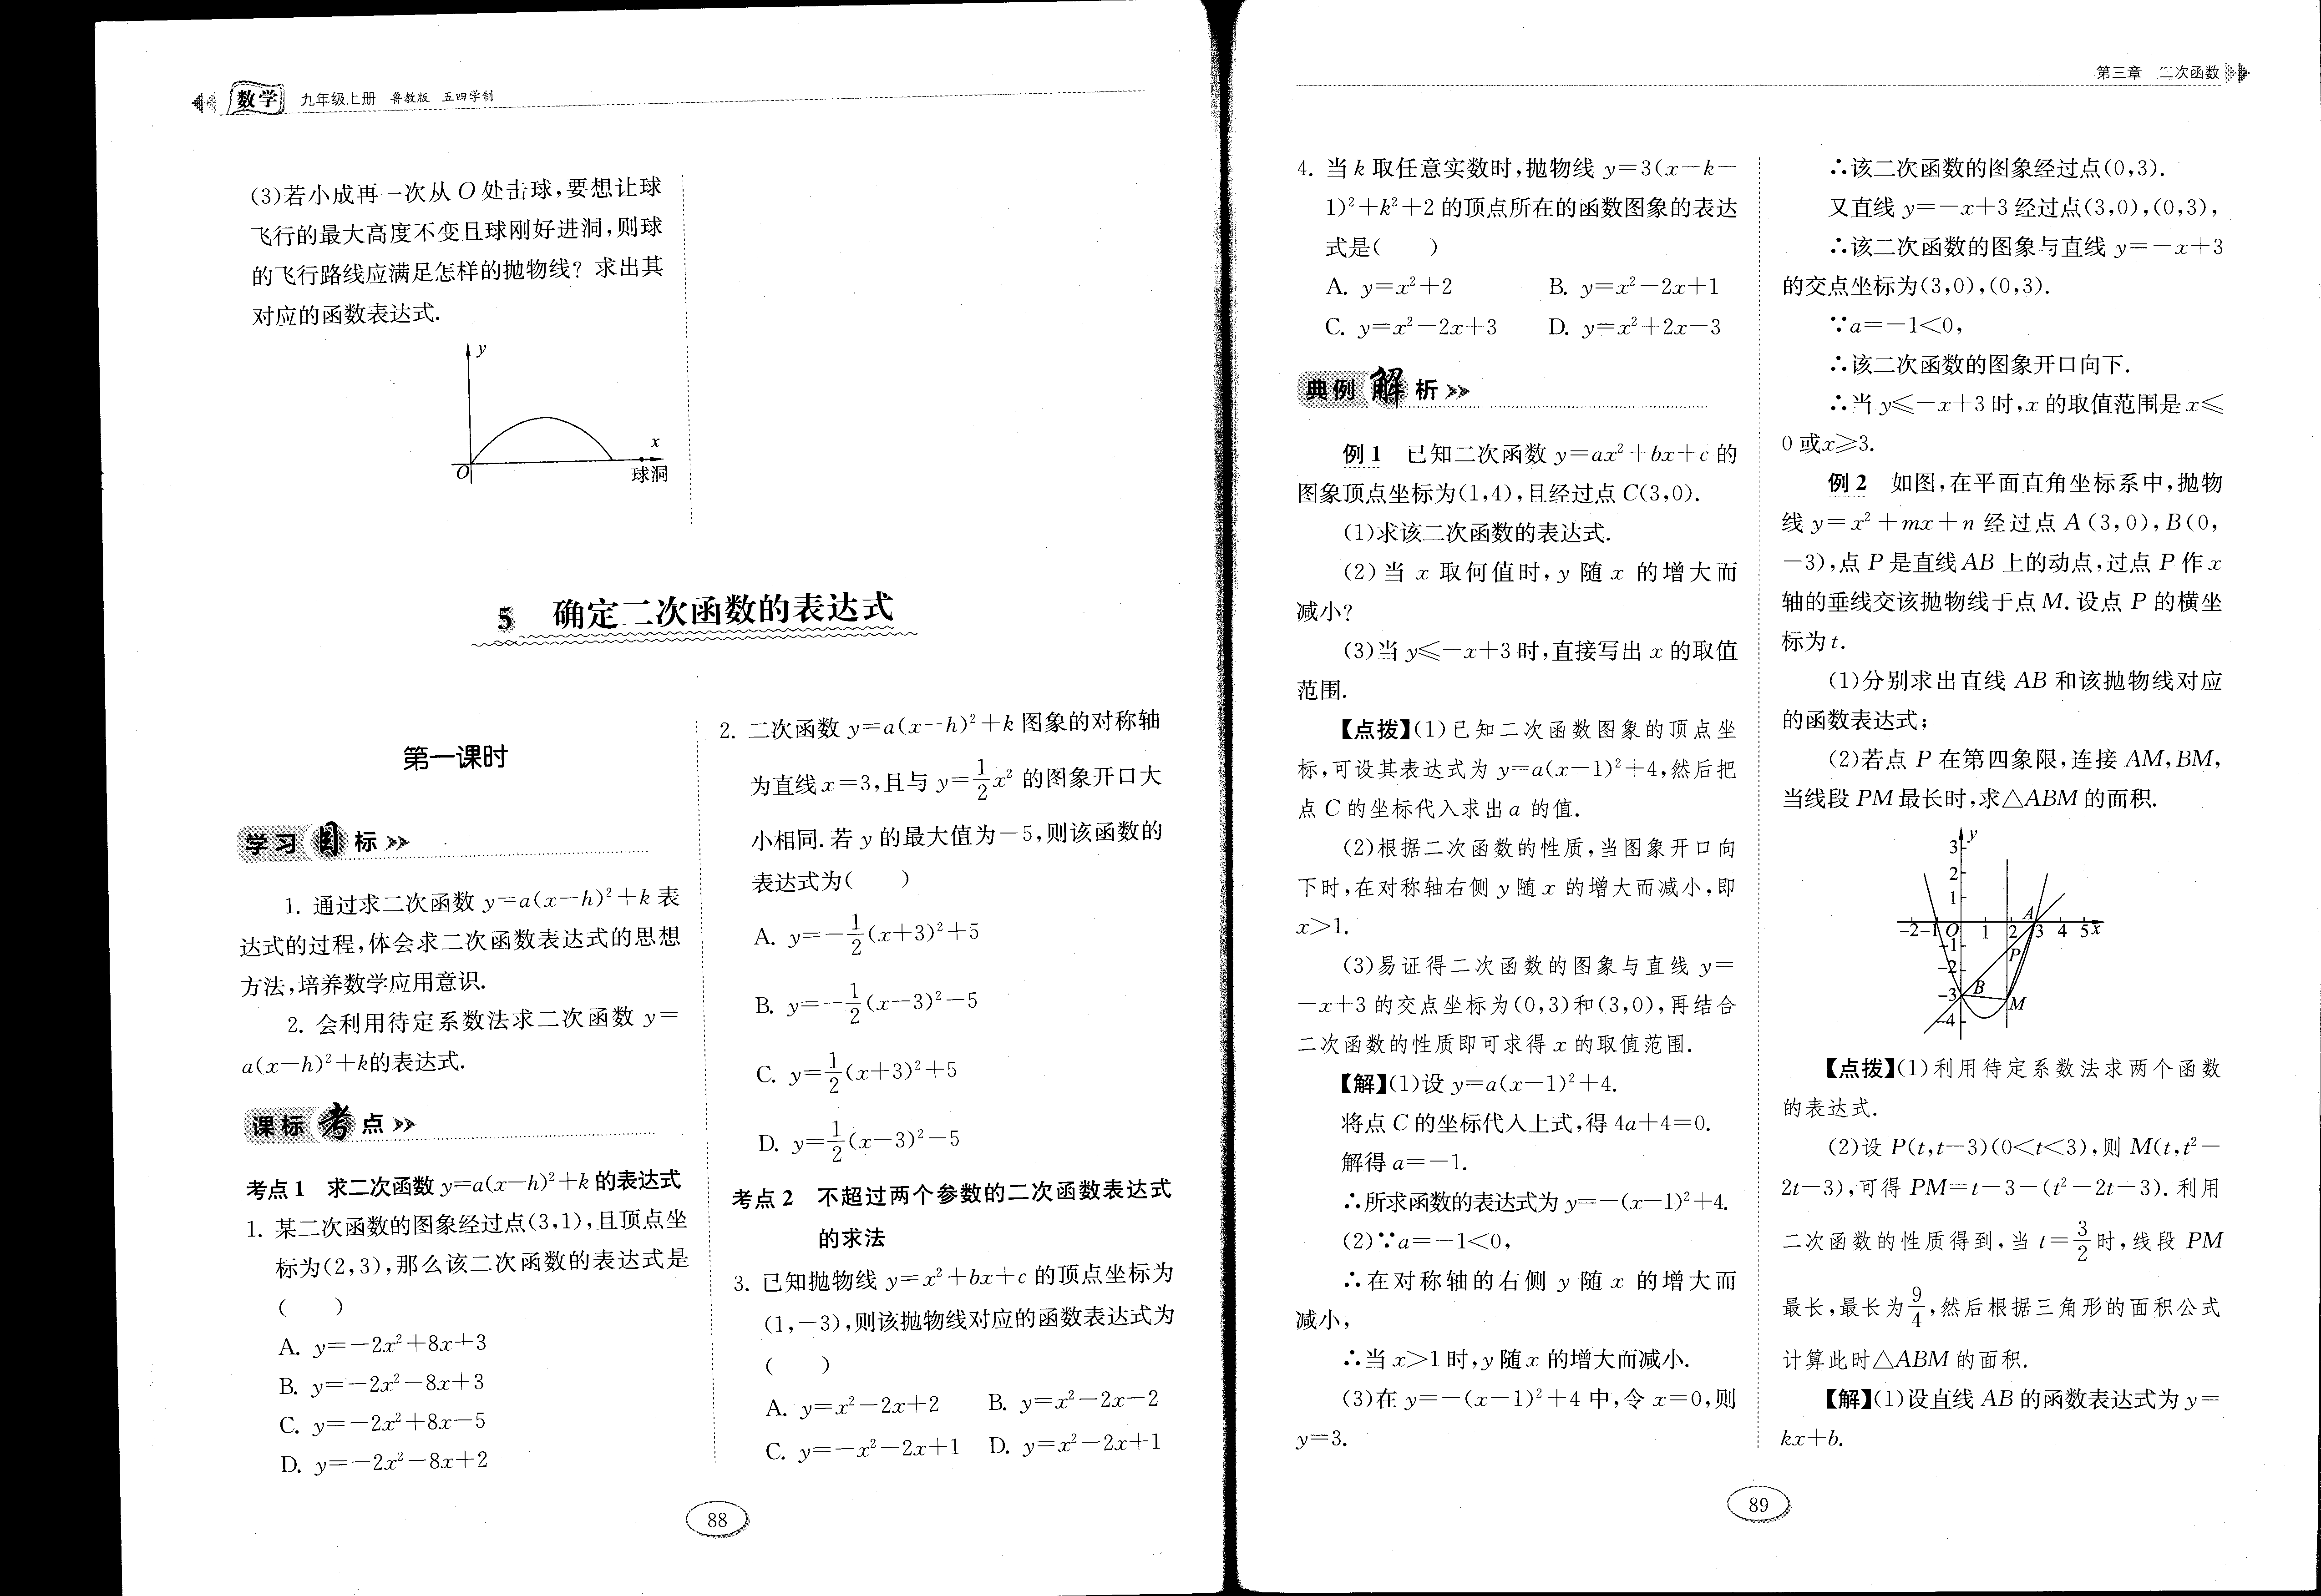 数学 九年级上册 鲁教版 五四学制
(3)若小成再一次从O处击球,要想让球
飞行的最大高度不变且球刚好进洞,则球
的飞行路线应满足怎样的抛物线？求出其
对应的函数表达式.
y
x
O
球洞
5 确定二次函数的表达式
第一课时
学习目标
1. 通过求二次函数 y=a(x-h)²+k 表
达式的过程,体会求二次函数表达式的思想
方法,培养数学应用意识.
2. 会利用待定系数法求二次函数 y=
a(x-h)²+k的表达式.
课标考点
考点1 求二次函数y=a(x-h)²+k的表达式
1. 某二次函数的图象经过点(3,1),且顶点坐
标为(2,3),那么该二次函数的表达式是
( )
A. y=-2x²+8x+3
B. y=-2x²-8x+3
C. y=-2x²+8x-5
D. y=-2x²-8x+2
2. 二次函数 y=a(x-h)²+k 图象的对称轴
为直线x=3,且与 y=1/2x² 的图象开口大
小相同.若 y 的最大值为-5,则该函数的
表达式为( )
A. y=-1/2(x+3)²+5
B. y=-1/2(x-3)²-5
C. y=1/2(x+3)²+5
D. y=1/2(x-3)²-5
考点2 不超过两个参数的二次函数表达式
的求法
3. 已知抛物线 y=x²+bx+c 的顶点坐标为
(1,-3),则该抛物线对应的函数表达式为
( )
A. y=x²-2x+2 B. y=x²-2x-2
C. y=-x²-2x+1 D. y=x²-2x+1
88
第三章 二次函数
4. 当 k 取任意实数时,抛物线 y=3(x-k-
1)²+k²+2 的顶点所在的函数图象的表达
式是( )
A. y=x²+2 B. y=x²-2x+1
C. y=x²-2x+3 D. y=x²+2x-3
典例解析
例1 已知二次函数 y=ax²+bx+c 的
图象顶点坐标为(1,4),且经过点 C(3,0).
(1)求该二次函数的表达式.
(2)当 x 取何值时,y 随 x 的增大而
减小?
(3)当 y≤-x+3 时,直接写出 x 的取值
范围.
【点拨】(1)已知二次函数图象的顶点坐
标,可设其表达式为 y=a(x-1)²+4,然后把
点 C 的坐标代入求出 a 的值.
(2)根据二次函数的性质,当图象开口向
下时,在对称轴右侧 y 随 x 的增大而减小,即
x>1.
(3)易证得二次函数的图象与直线 y=
-x+3 的交点坐标为(0,3)和(3,0),再结合
二次函数的性质即可求得 x 的取值范围.
【解】(1)设 y=a(x-1)²+4.
将点 C 的坐标代入上式,得 4a+4=0.
解得 a=-1.
∴所求函数的表达式为 y=-(x-1)²+4.
(2)∵a=-1<0,
∴在对称轴的右侧 y 随 x 的增大而
减小,
∴当 x>1 时,y 随 x 的增大而减小.
(3)在 y=-(x-1)²+4 中,令 x=0,则
y=3.
∴该二次函数的图象经过点(0,3).
又直线 y=-x+3 经过点(3,0),(0,3),
∴该二次函数的图象与直线 y=-x+3
的交点坐标为(3,0),(0,3).
∵a=-1<0,
∴该二次函数的图象开口向下.
∴当 y≤-x+3 时,x 的取值范围是 x≤
0 或x≥3.
例2 如图,在平面直角坐标系中,抛物
线 y=x²+mx+n 经过点 A(3,0),B(0,
-3),点 P 是直线AB 上的动点,过点 P 作 x
轴的垂线交该抛物线于点 M.设点 P 的横坐
标为 t.
(1)分别求出直线 AB 和该抛物线对应
的函数表达式;
(2)若点 P 在第四象限,连接 AM,BM,
当线段 PM 最长时,求△ABM 的面积.
y
3
2
1
A
-2 -1 O 1 2 3 4 5 x
-1
P
-2
-3 B
M
-4
【点拨】(1)利用待定系数法求两个函数
的表达式.
(2)设 P(t,t-3)(0<t<3),则 M(t,t²-
2t-3),可得 PM=t-3-(t²-2t-3).利用
二次函数的性质得到,当 t=3/2时,线段 PM
最长,最长为9/4,然后根据三角形的面积公式
计算此时△ABM 的面积.
【解】(1)设直线 AB 的函数表达式为 y=
kx+b.
89